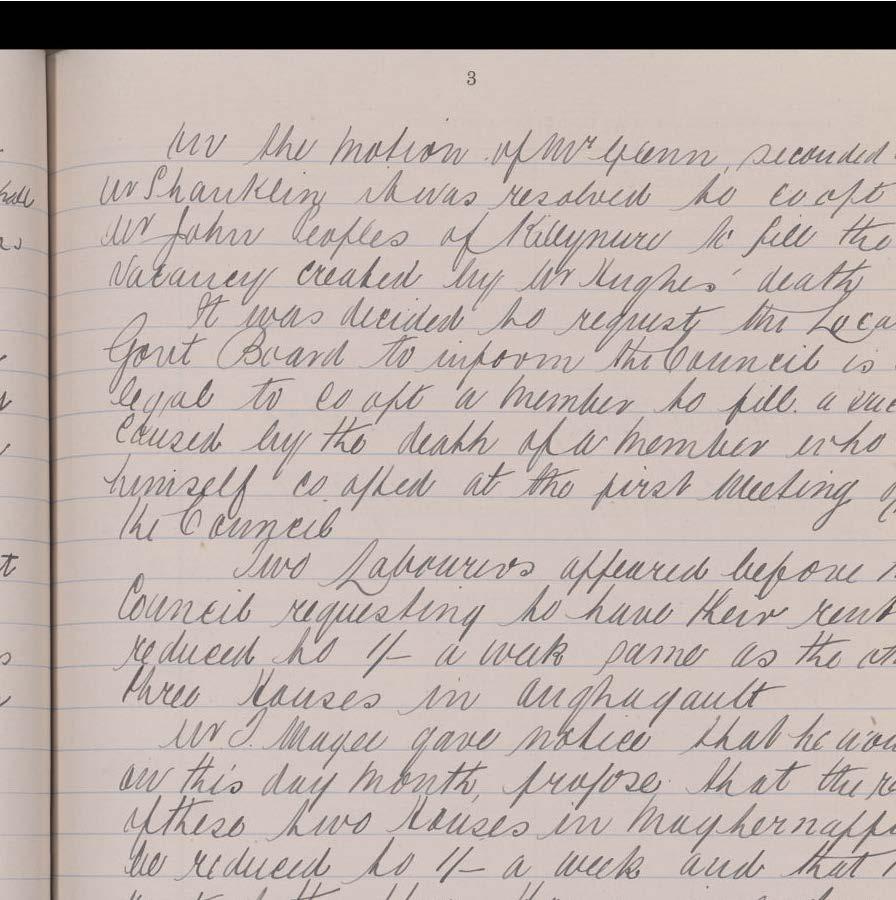 3
On the motion of Mr Glenn, seconded
Mr Shanklin it was resolved to co opt
Mr John Peoples of Killynure to fill the
vacancy created by Mr Hughes' death
It was decided to request the Loca
Govt Board to inform the Council is
legal to co opt a member to fill a vac
caused by the death of a member who
himself co opted at the first Meeting o
the Council
Two Labourers appeared before
Council requesting to have their rent
reduced to 1/- a week same as the ot
three Houses in Aughagault
Mr J. Magee gave notice that he wou
on this day month, propose that the re
of these two Houses in Maghernappe
be reduced to 1/- a week and that